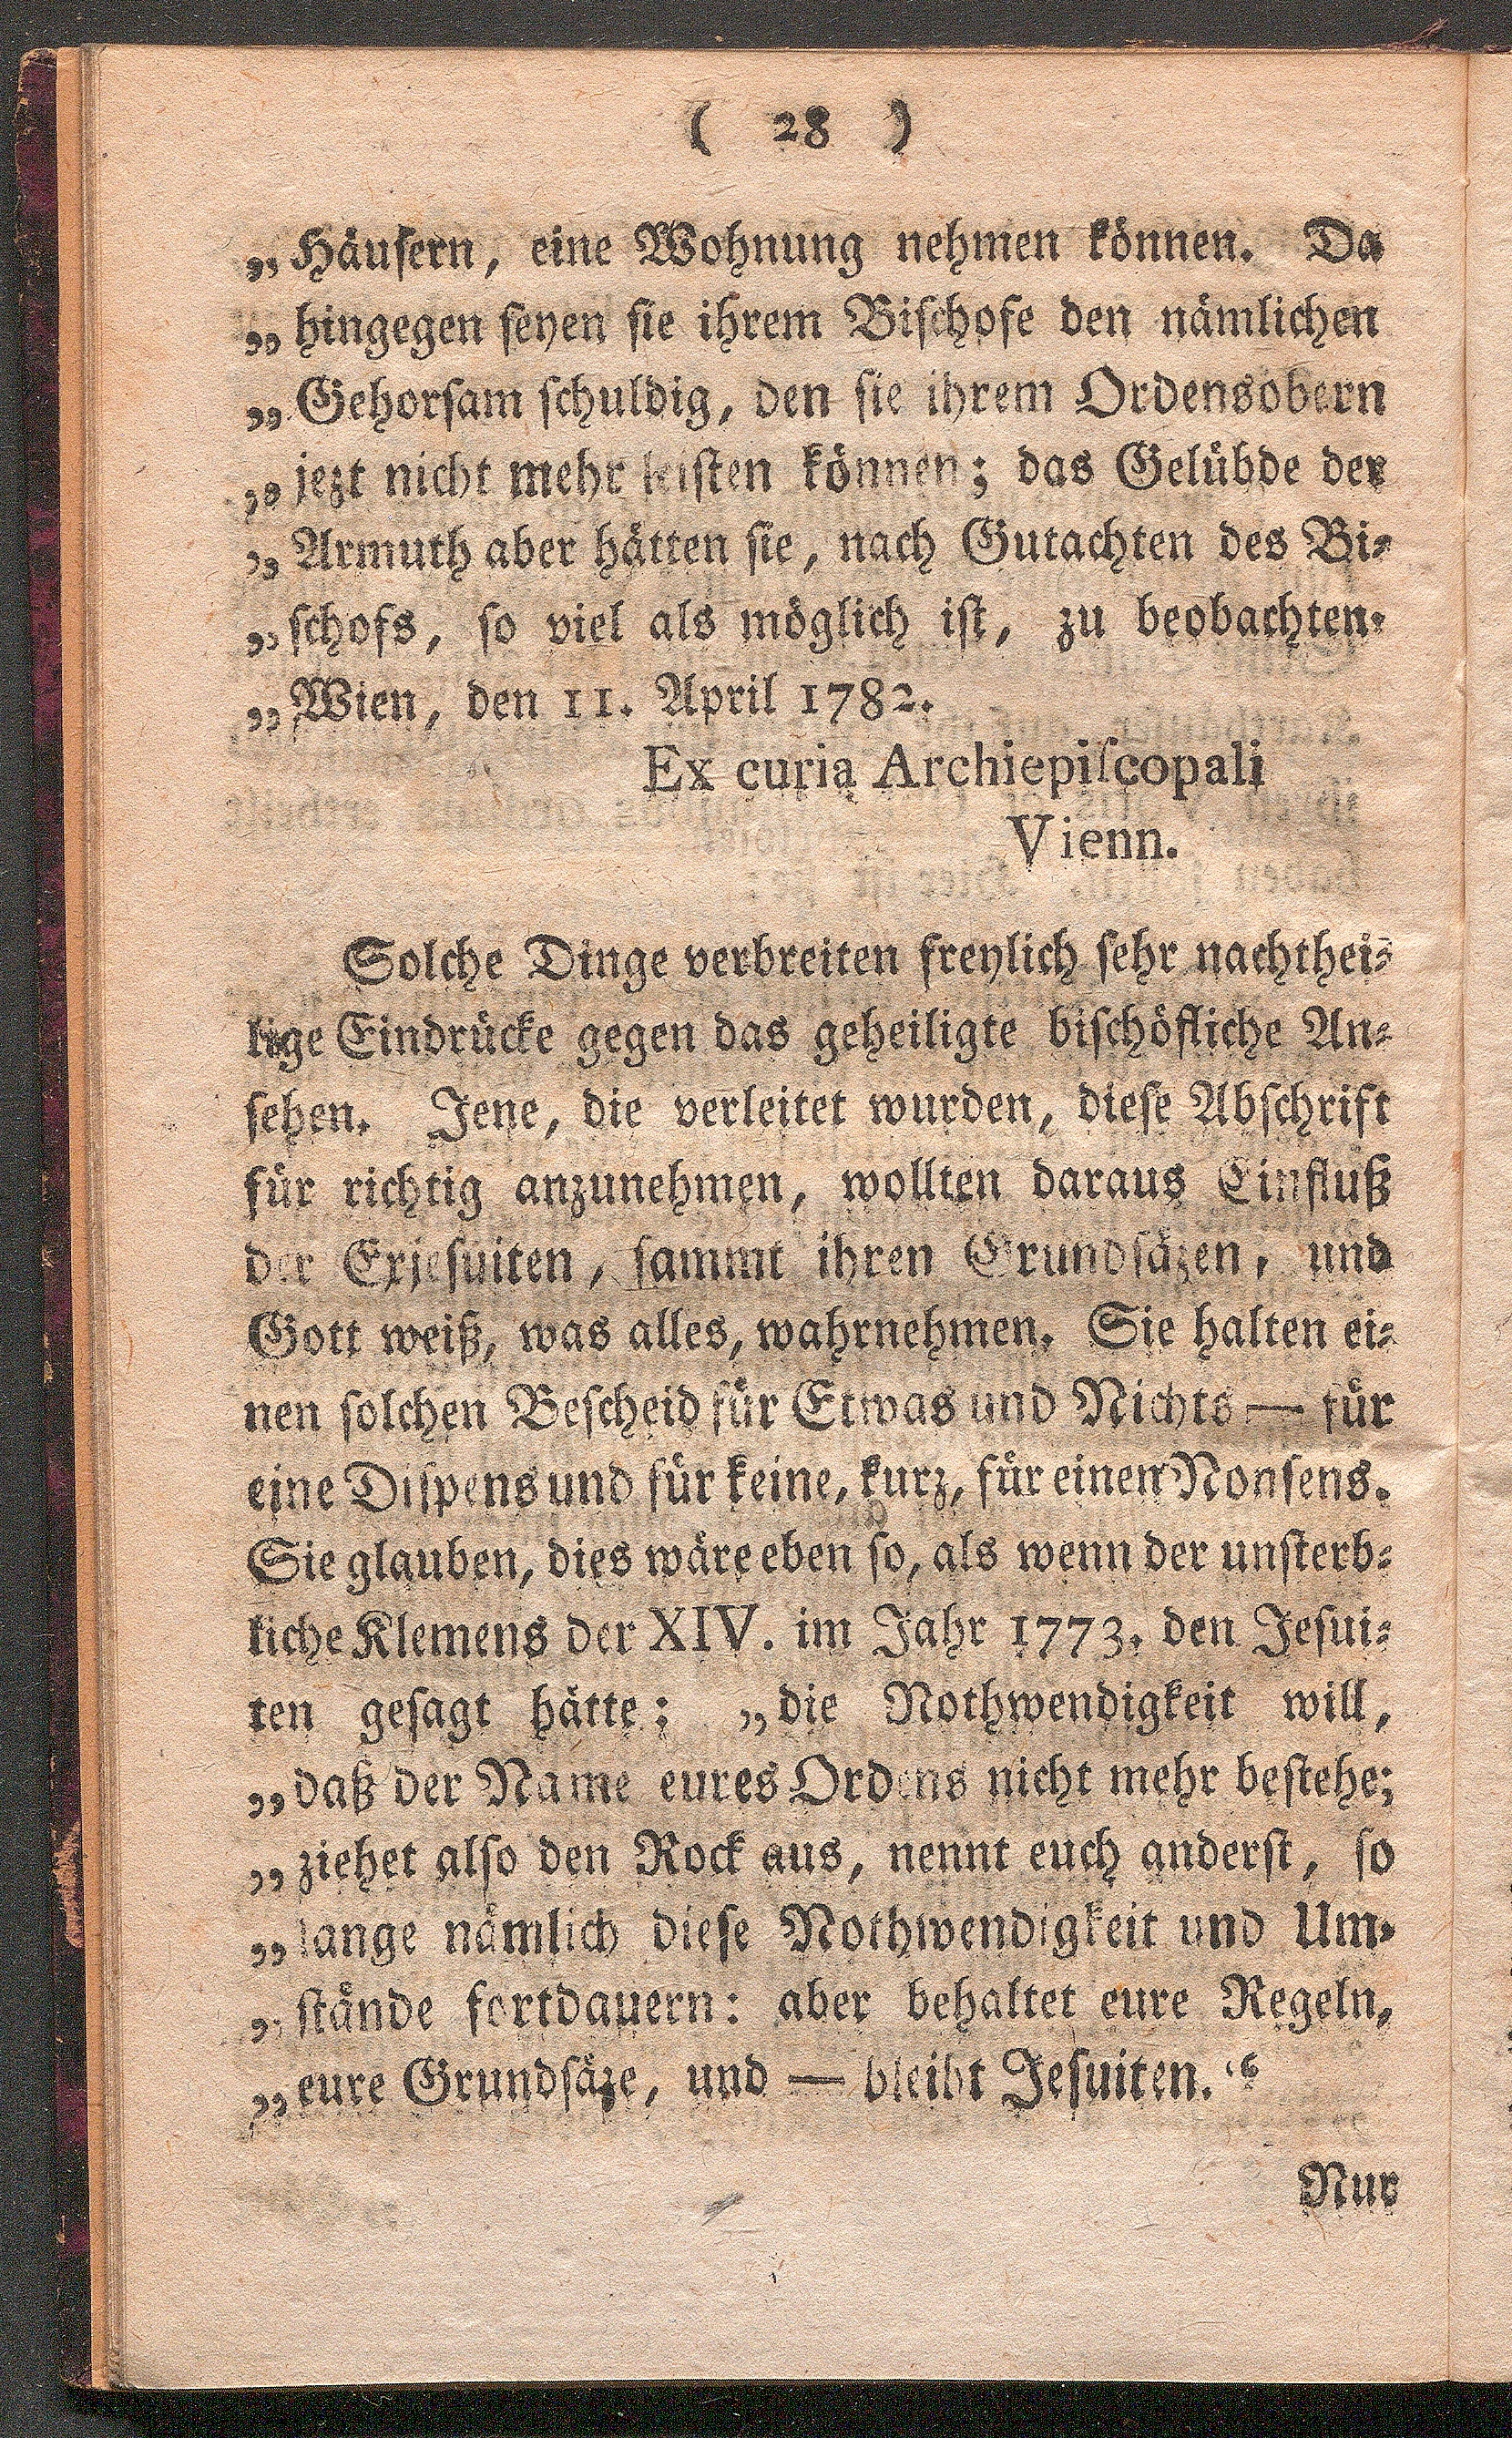 ( 28 )
„Häusern, eine Wohnung nehmen können. Da
„hingegen seyen sie ihrem Bischofe den nämlichen
„Gehorsam schuldig, den sie ihrem Ordensobern
„jezt nicht mehr leisten können; das Gelübde der
„Armuth aber hätten sie, nach Gutachten des Bi-
„schofs, so viel als möglich ist, zu beobachten.
„Wien, den 11. April 1782.
Ex curia Archiepiſcopali
Vienn.
Solche Dinge verbreiten freylich sehr nachthei-
lige Eindrücke gegen das geheiligte bischöfliche An-
sehen. Jene, die verleitet wurden, diese Abschrift
für richtig anzunehmen, wollten daraus Einfluß
der Exjesuiten, sammt ihren Grundsäzen, und
Gott weiß, was alles, wahrnehmen. Sie halten ei-
nen solchen Bescheid für Etwas und Nichts — für
eine Dispens und für keine, kurz, für einen Nonsens.
Sie glauben, dies wäre eben so, als wenn der unsterb-
liche Klemens der XIV. im Jahr 1773. den Jesui-
ten gesagt hätte: „die Nothwendigkeit will,
„daß der Name eures Ordens nicht mehr bestehe;
„ziehet also den Rock aus, nennt euch anderst, so
„lange nämlich diese Nothwendigkeit und Um-
„stände fortdauern: aber behaltet eure Regeln,
„eure Grundsäze, und — bleibt Jesuiten.“
Nur